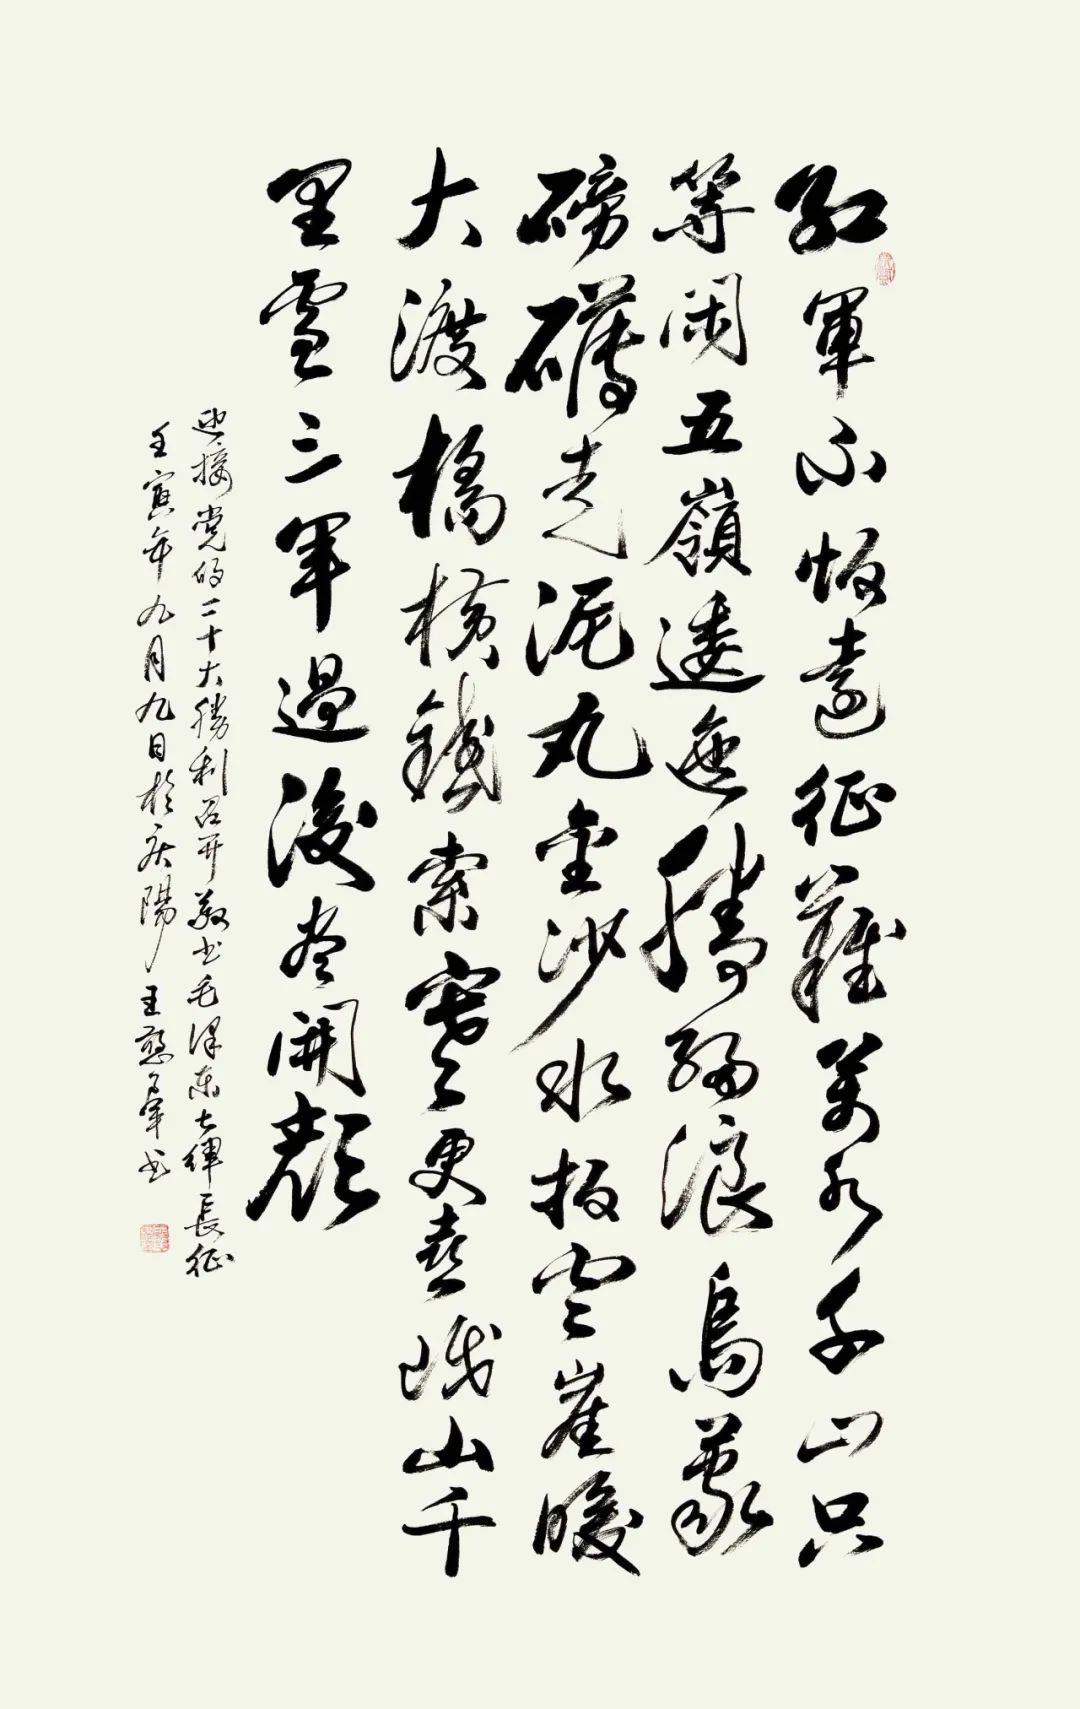 紅軍不怕遠征難萬水千山只
等閑五嶺逶迤騰細浪烏蒙
磅礴走泥丸金沙水拍雲崖暖
大渡橋橫鐵索寒更喜岷山千
里雪三軍過後尽開顏
迎接党的二十大勝利召开敬书毛澤東七律長征
壬寅年九月九日於庆陽王憨軍书